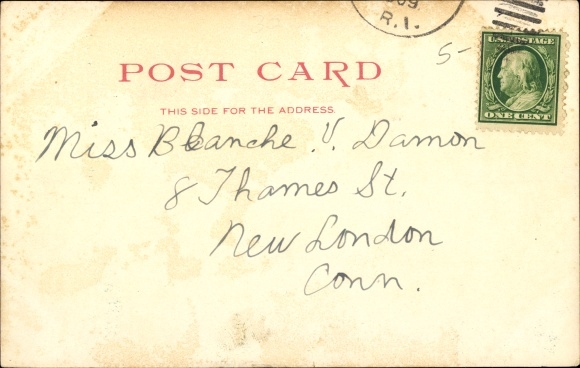 09
R.I.
5-
U.S. POSTAGE
POST CARD
ONE CENT
THIS SIDE FOR THE ADDRESS
Miss Blanche V. Damon
8 Thames St.
New London
Conn.